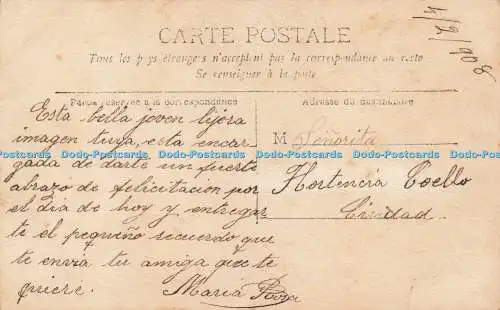 CARTE POSTALE
4/2/908
Tous les pays étrangers n'acceptent pas la correspondance au recto
Se renseigner à la poste
Partie réservée à la correspondance
Adresse du destinataire
Esta bella joven lijera
imagen tuya, esta encar
gada de darte un fuerte
abrazo de felicitacion por
el dia de hoy y entregar
te el pequeño recuerdo que
te envia tu amiga que te
quiere. Maria Rosa
M Señorita
Hortencia Coello
Ciudad.
Dodo-Postcards Dodo-Postcards Dodo-Postcards Dodo-Postcards